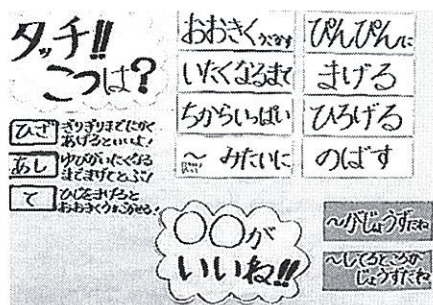 タッチ!!
こつは?
ひざ
ぎりぎりまでたかく
あげるといいよ!
あし
ゆびがいたくなる
までまげてとぶ!
て
ひじをまげると
おおきくうごかせる!
おおきくうごかす
いたくなるまで
ちからいっぱい
〜みたいに
ぴんぴんに
まげる
ひろげる
のばす
〇〇が
いいね!!
〜がじょうずだね
〜してるところが
じょうずだね